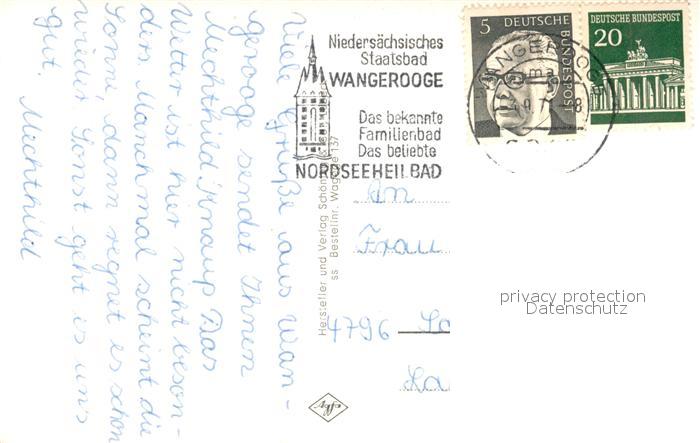 Viele Grüße aus Wan-
gerooge sendet Ihnen
Mechthild Knaup Das
Wetter ist hier nicht beson-
ders Manchmal scheint die
Sonne, dann regnet es schon
wieder Sonst geht es uns
gut. Mechthild
Niedersächsisches
Staatsbad
WANGEROOGE
Das bekannte
Familienbad
Das beliebte
NORDSEEHEILBAD
5 DEUTSCHE BUNDESPOST
DEUTSCHE BUNDESPOST
20
WANGEROOGE
An
Frau
4796
Hersteller und Verlag Schöning &
ss Bestellnr. Wagge 137
privacy protection
Datenschutz